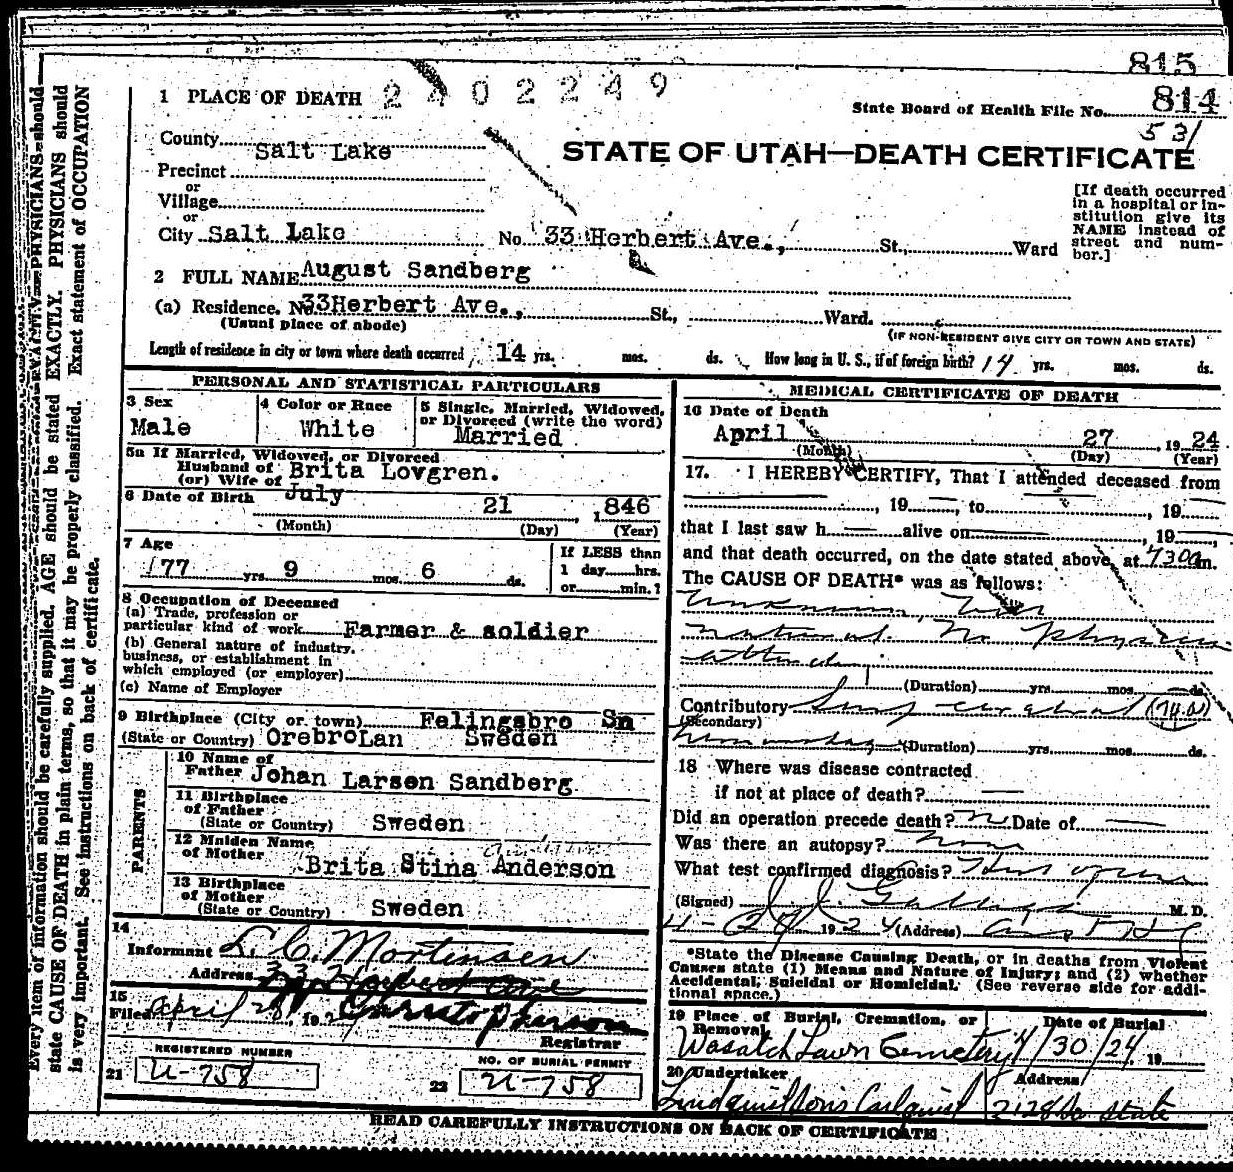 815
1 PLACE OF DEATH 2402249
State Board of Health File No. 814
531
County Salt Lake
STATE OF UTAH—DEATH CERTIFICATE
Precinct
or
Village
or
City Salt Lake No. 33 Herbert Ave., St., Ward
[If death occurred
in a hospital or in-
stitution give its
NAME instead of
street and num-
ber.]
2 FULL NAME August Sandberg
(a) Residence. No. 33Herbert Ave., St., Ward.
(Usual place of abode)
(IF NON-RESIDENT GIVE CITY OR TOWN AND STATE)
Length of residence in city or town where death occurred 14 yrs. mos. ds. How long in U. S., if of foreign birth? 14 yrs. mos. ds.
PERSONAL AND STATISTICAL PARTICULARS
3 Sex
Male
4 Color or Race
White
5 Single, Married, Widowed,
or Divorced (write the word)
Married
5a If Married, Widowed, or Divorced
Husband of
(or) Wife of Brita Lovgren.
6 Date of Birth July 21, 1846
(Month) (Day) (Year)
7 Age
77 yrs. 9 mos. 6 ds.
If LESS than
1 day hrs.
or min.?
8 Occupation of Deceased
(a) Trade, profession or
particular kind of work Farmer & soldier
(b) General nature of industry,
business, or establishment in
which employed (or employer)
(c) Name of Employer
9 Birthplace (City or town) Felingsbro Sn
(State or Country) OrebroLan Sweden
PARENTS
10 Name of
Father Johan Larsen Sandberg
11 Birthplace
of Father
(State or Country) Sweden
12 Maiden Name
of Mother
Brita Stina Anderson
13 Birthplace
of Mother
(State or Country) Sweden
14
Informant L. C. Mortensen
Address 33 Herbert Ave
15
Filed April 28, 192
Registrar
REGISTERED NUMBER
21 U-758
NO. OF BURIAL PERMIT
22 U-758
MEDICAL CERTIFICATE OF DEATH
16 Date of Death
April 27, 1924
(Month) (Day) (Year)
17. I HEREBY CERTIFY, That I attended deceased from
, 19 , to , 19
that I last saw h alive on , 19 ,
and that death occurred, on the date stated above, at 730 a m.
The CAUSE OF DEATH* was as follows:
Unknown,
natural. No physician
attending
(Duration) yrs. mos. ds.
Contributory cerebral (74.a)
(Secondary)
hemorrhage (Duration) yrs. mos. ds.
18 Where was disease contracted
if not at place of death? —
Did an operation precede death? n Date of —
Was there an autopsy? none
What test confirmed diagnosis?
(Signed) M. D.
4-29 1924 (Address)
*State the Disease Causing Death, or in deaths from Violent
Causes state (1) Means and Nature of Injury; and (2) whether
Accidental, Suicidal or Homicidal. (See reverse side for addi-
tional space.)
19 Place of Burial, Cremation, or
Removal
Wasatch Lawn Cemetery
Date of Burial
4/30/24, 19
20 Undertaker
Lindquist Sons Carlquist
Address
2128 So State
READ CAREFULLY INSTRUCTIONS ON BACK OF CERTIFICATE
Every item of information should be carefully supplied. AGE should be stated EXACTLY. PHYSICIANS should
state CAUSE OF DEATH in plain terms, so that it may be properly classified. Exact statement of OCCUPATION
is very important. See instructions on back of certificate.